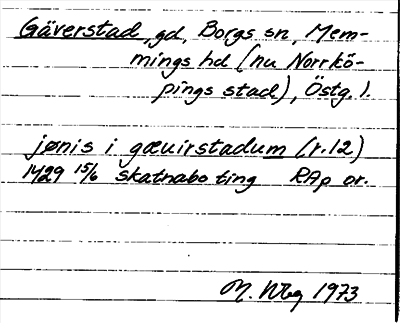 Gäverstad, gd, Borgs sn, Mem-
mings hd (nu Norrkö-
pings stad), Östg. l.
jønis i gæuirstadum (r.12)
1429 15/6 skatnabo ting RAp or.
M. Wbg 1973